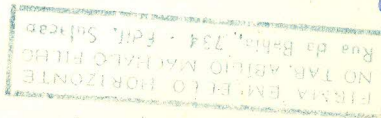 FIRMA EM BELO HORIZONTE
NO TAB. ABILIO MACHADO FILHO
Rua da Bahia, 734 - Edif. Sulacap